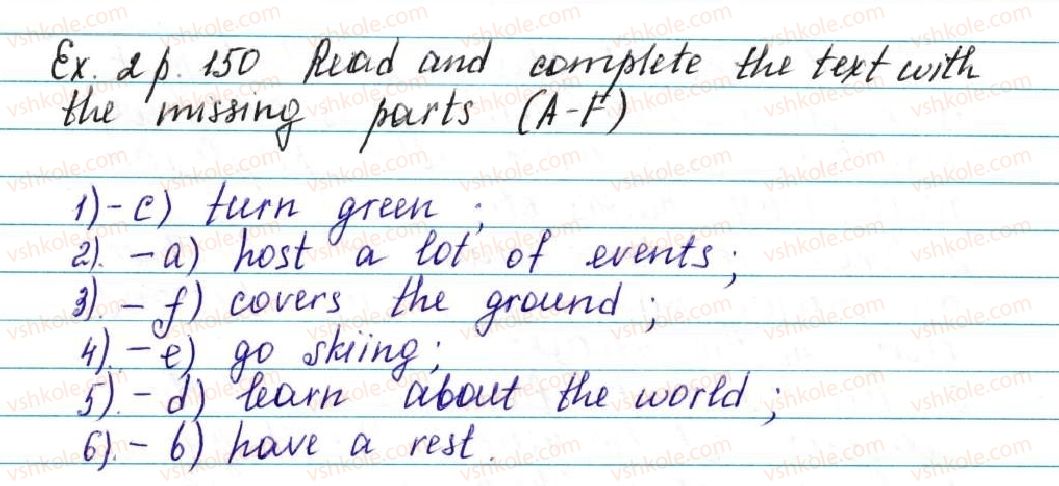 Ex. 2 p. 150 Read and complete the text with
the missing parts (A-F)
1)-c) turn green;
2). -a) host a lot of events;
3). - f) covers the ground;
4). -e) go skiing;
5). - d) learn about the world;
6). - b) have a rest.